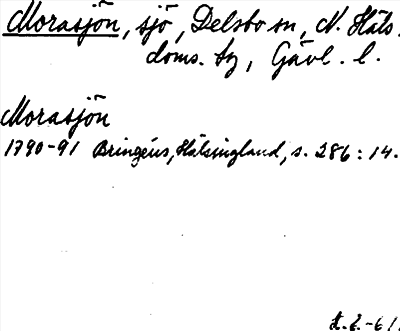 Morasjön, sjö, Delsbo sn, N. Häls.
doms. sg, Gävl. l.
Morasjön
1790-91 Bringéus, Hälsingland, s. 286:14.